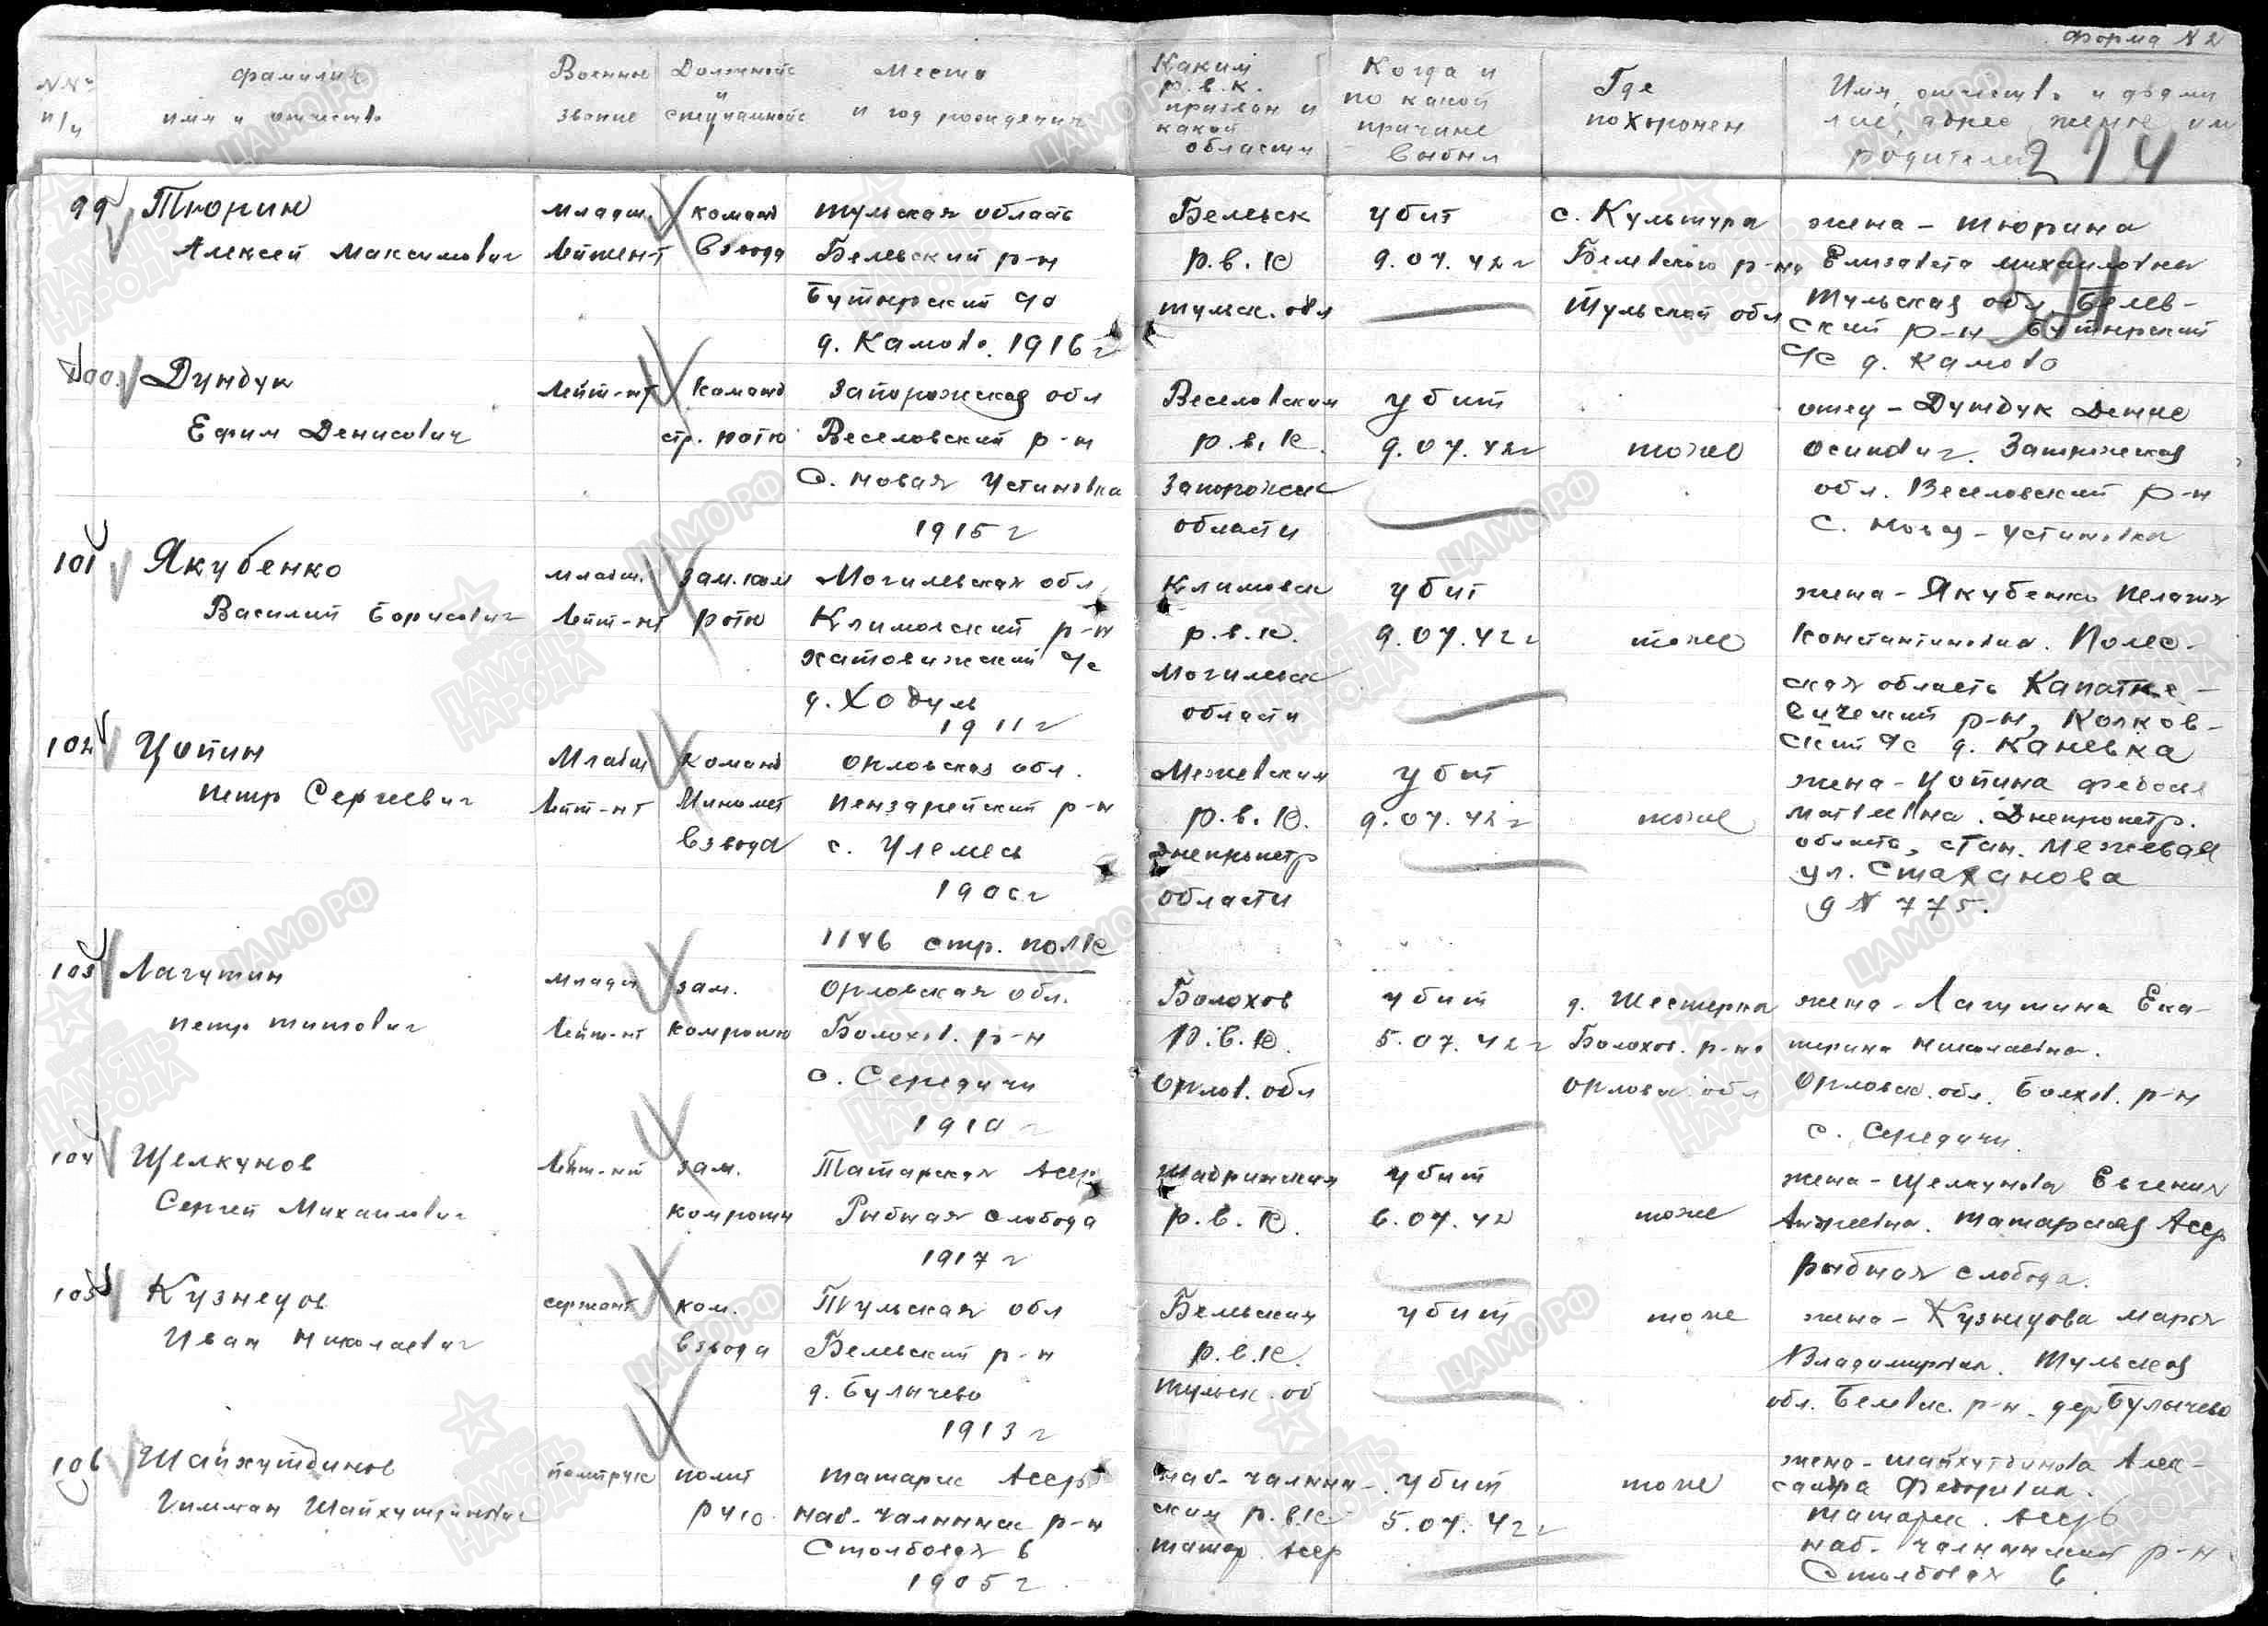 Форма N 2
NN п/п
Фамилия имя и отчество
Военное звание
Должность и специальность
Место и год рождения
Каким р.в.к. призван и какой области
Когда и по какой причине выбыл
Где похоронен
Имя, отчество и фамилие, адрес жены или родителей
214
321
99 Тюрин
Алексей Максимович
Младш. Лейтен-т
команд взвода
Тульская область
Белевский р-н
Бутырский с/с
д. Камово. 1916 г
Белевск
р.в.к
тульск. обл
убит
9.07.42 г
с. Культура
Белевского р-на
Тульской обл
жена - Тюрина
Елизавета Михайловна
Тульская обл. Белев-
ский р-н Бутырский
с/с д. Камово
100 Дундук
Ефим Денисович
Лейт-нт
команд
стр. роты
Запорожская обл
Веселовский р-н
с. Новая Устиновка
1915 г
Веселовским
р.в.к.
Запорожск
области
убит
9.07.42 г
тоже
отец - Дундук Денис
Осипович. Запорожская
обл. Веселовский р-н
с. Новая - Устиновка
101 Якубенко
Василий Борисович
Младш.
Лейт-нт
зам. ком
роты
Могилевская обл
Климовский р-н
Хатовижский с/с
д. Ходунь
1911 г
Климовск
р.в.к.
Могилевск
области
убит
9.07.42 г
тоже
жена - Якубенко Пелагия
Константиновна. Полес-
ская область Капатке-
вичский р-н, Колков-
ский с/с д. Каневка
102 Цопин
Петр Сергеевич
Младш
Лейт-нт
команд
Миномет
взвода
Орловская обл.
с. Улемесь
1906 г
Межевским
р.в.к.
Днепропетр
области
убит
9.07.42 г
тоже
жена - Цопина
Матвеевна. Днепропетр.
область, стан. Межевая
ул. Стаханова
д N 775.
1146 стр. полк
103 Лагутин
Петр Титович
Младш
Лейт-нт
зам.
комроты
Орловская обл.
Болохов. р-н
с. Середичи
1910 г
Болохов
р.в.к.
Орлов. обл
убит
5.07.42 г
д. Шестерка
Болохов. р-на
Орловск. обл
жена - Лагутина Ека-
терина Николаевна.
Орловск. обл. Болхов. р-н
с. Середичи
104 Щелкунов
Сергей Михайлович
Лейт-нт
зам.
комроты
Татарская Асср
Рыбная слобода
1917 г
Шадринским
р.в.к.
убит
6.07.42
тоже
жена - Щелкунова Евгения
Татарская Асср
рыбная слобода.
105 Кузнецов
Иван Николаевич
сержант
ком.
взвода
Тульская обл
Белевский р-н
д. Булычево
1913 г
Белевским
р.в.к.
Тульск. об
убит
тоже
жена - Кузнецова Мария
Владимировна. Тульская
обл. Белевск. р-н. дер Булычево
106 Шайхутдинов
Гилман Шайхутдинович
политрук
полит
рук
Татарск Асср
Наб-Челнинск р-н
Столбовая 6
1905 г
Наб-Челнин-
ским р.в.к
Татар. Асср
убит
5.07.42 г
тоже
жена - Шайхутдинова Алек-
сандра Федоровна.
Татарск. Асср
Наб-Челнинский р-н
Столбовая 6
ПАМЯТЬ НАРОДА
ЦАМО РФ